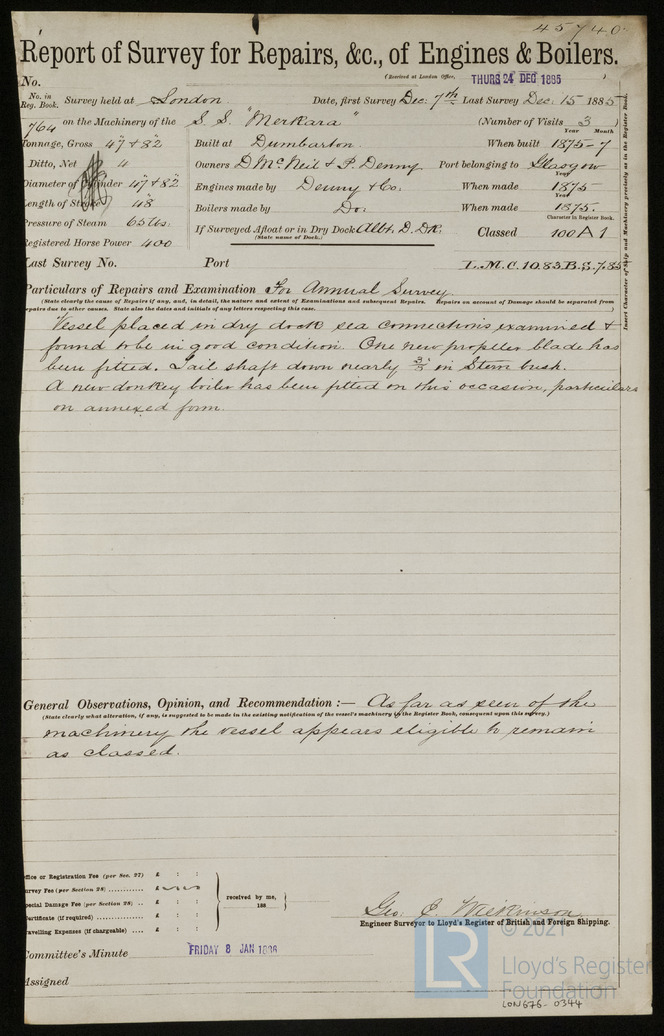 45740.
Report of Survey for Repairs, &c., of Engines & Boilers.
(Received at London Office, THURS 24 DEC 1885 )
No.
No. in Reg. Book. Survey held at London Date, first Survey Dec: 7th Last Survey Dec: 15 1885
764 on the Machinery of the S.S. "Merkara" (Number of Visits 3 )
Year Month
Tonnage, Gross 47 & 82 Built at Dumbarton When built 1875-7
Ditto, Net Owners D. McNeil & P. Denny Port belonging to Glasgow
Year
Diameter of Cylinder 47 & 82 Engines made by Denny & Co. When made 1875
Year
Length of Stroke 48 Boilers made by Do. When made 1875.
Character in Register Book.
Pressure of Steam 65 lbs. If Surveyed Afloat or in Dry Dock Albt. D. DK. Classed 100 A 1
(State name of Dock.)
Registered Horse Power 400
Last Survey No. Port L.M.C. 10.83 B.S. 7.85
Insert Character of Ship and Machinery precisely as in the Register Book.
Particulars of Repairs and Examination For Annual Survey
(State clearly the cause of Repairs if any, and, in detail, the nature and extent of Examinations and subsequent Repairs. Repairs on account of Damage should be separated from
repairs due to other causes. State also the dates and initials of any letters respecting this case.
Vessel placed in dry dock sea connections examined &
found to be in good condition. One new propeller blade has
been fitted. Tail shaft down nearly in Stern bush.
A new donkey boiler has been fitted on this occasion, particulars
on annexed form.
General Observations, Opinion, and Recommendation :— As far as seen of the
(State clearly what alteration, if any, is suggested to be made in the existing notification of the vessel's machinery in the Register Book, consequent upon this survey.)
machinery the vessel appears eligible to remain
as classed.
Office or Registration Fee (per Sec. 27) £ : :
Survey Fee (per Section 28) ............ £
Special Damage Fee (per Section 28) .. £ : :
Certificate (if required) ............... £ : :
Travelling Expenses (if chargeable) .... £ : :
received by me,
188
Geo. C. Wilkinson
Engineer Surveyor to Lloyd's Register of British and Foreign Shipping.
Committee's Minute FRIDAY 8 JAN 1886
Assigned
© 2021
LR
Lloyd's Register
Foundation
LON676-0344